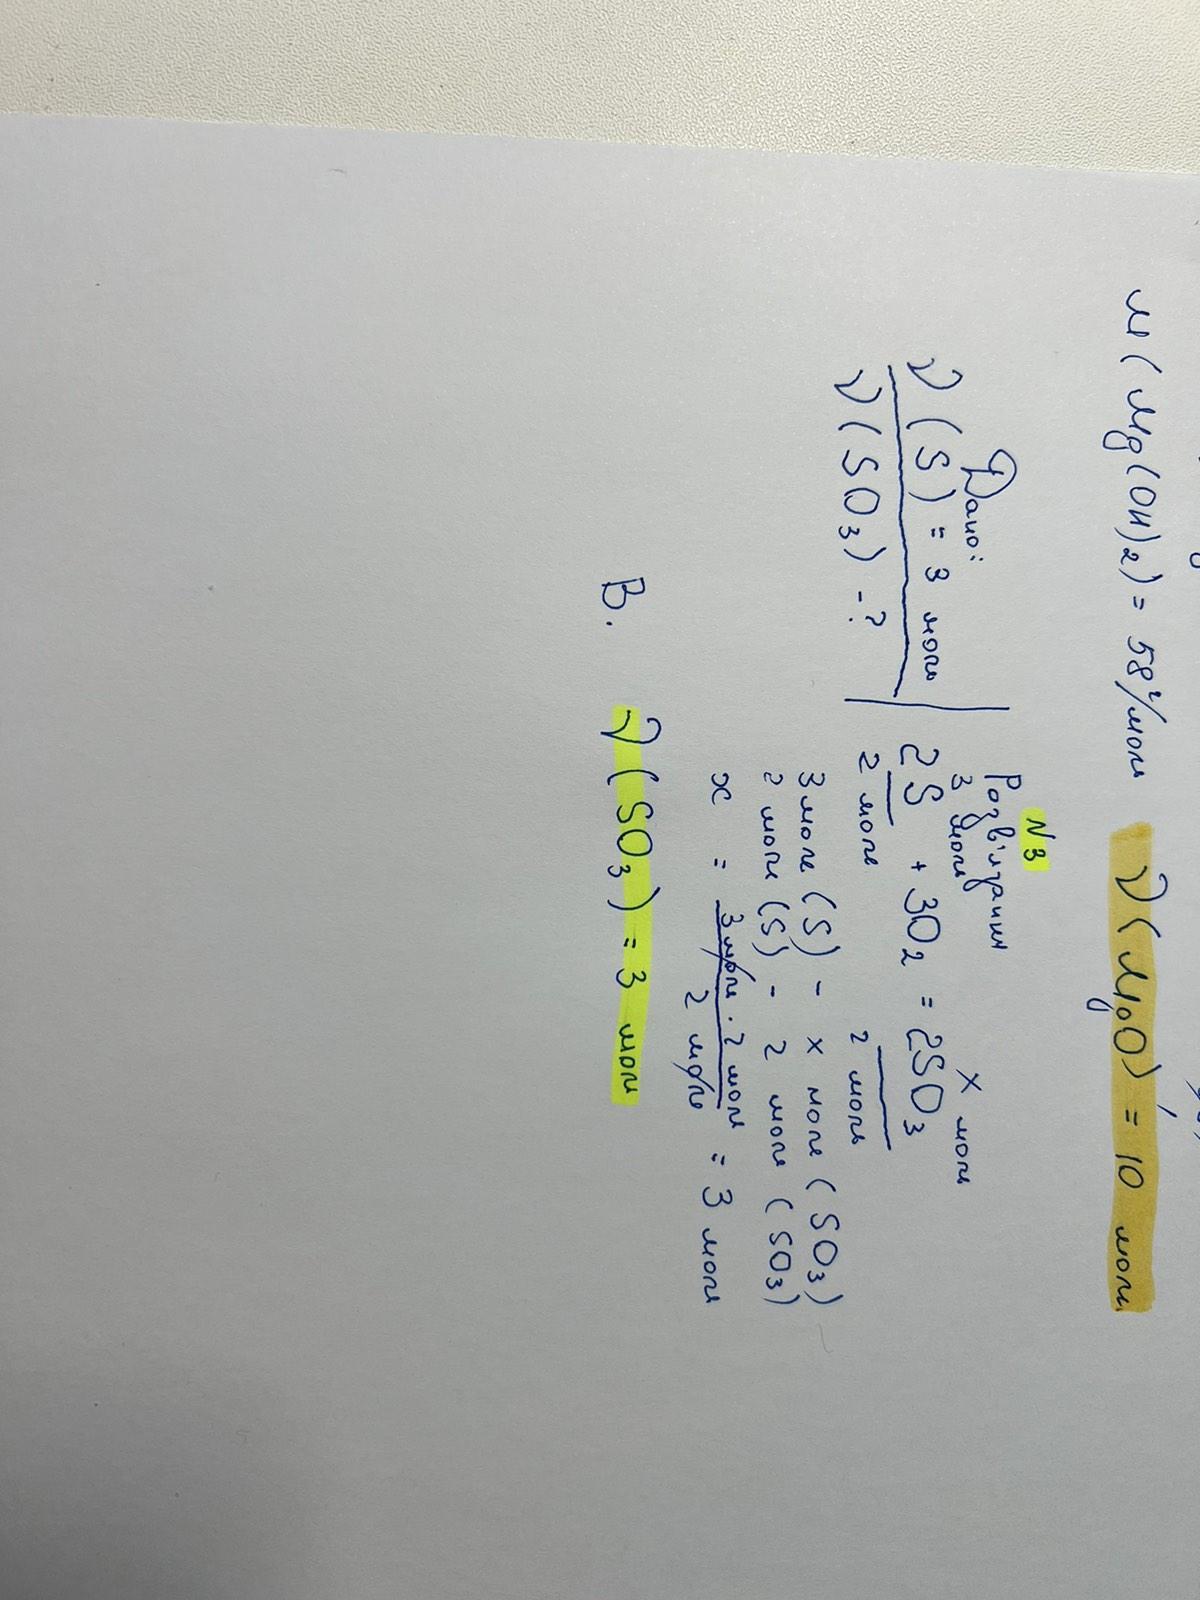 M(Mg(OH)2) = 58 г/моль ν(MgO) = 10 моль
N3
Дано: Розв'язання
3 моль x моль
ν(S) = 3 моль 2S + 3O2 = 2SO3
ν(SO3) - ? 2 моль 2 моль
3 моль (S) - x моль (SO3)
2 моль (S) - 2 моль (SO3)
x = 3 моль · 2 моль / 2 моль = 3 моль
В. ν(SO3) = 3 моль